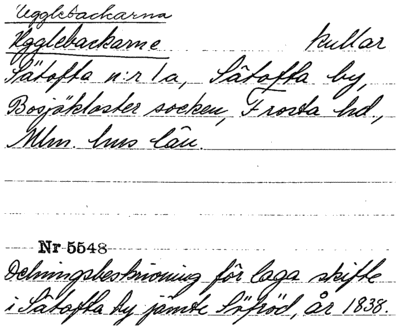 Ugglebackarna
Ugglebackarne kullar
Sätofta n:r 1a, Sätofta by,
Bosjökloster socken, Frosta hd.,
Mlm. hus län.
Nr 5548
Delningsbeskrivning för laga skifte
i Sätofta by jämte Sjöröd, år 1838.